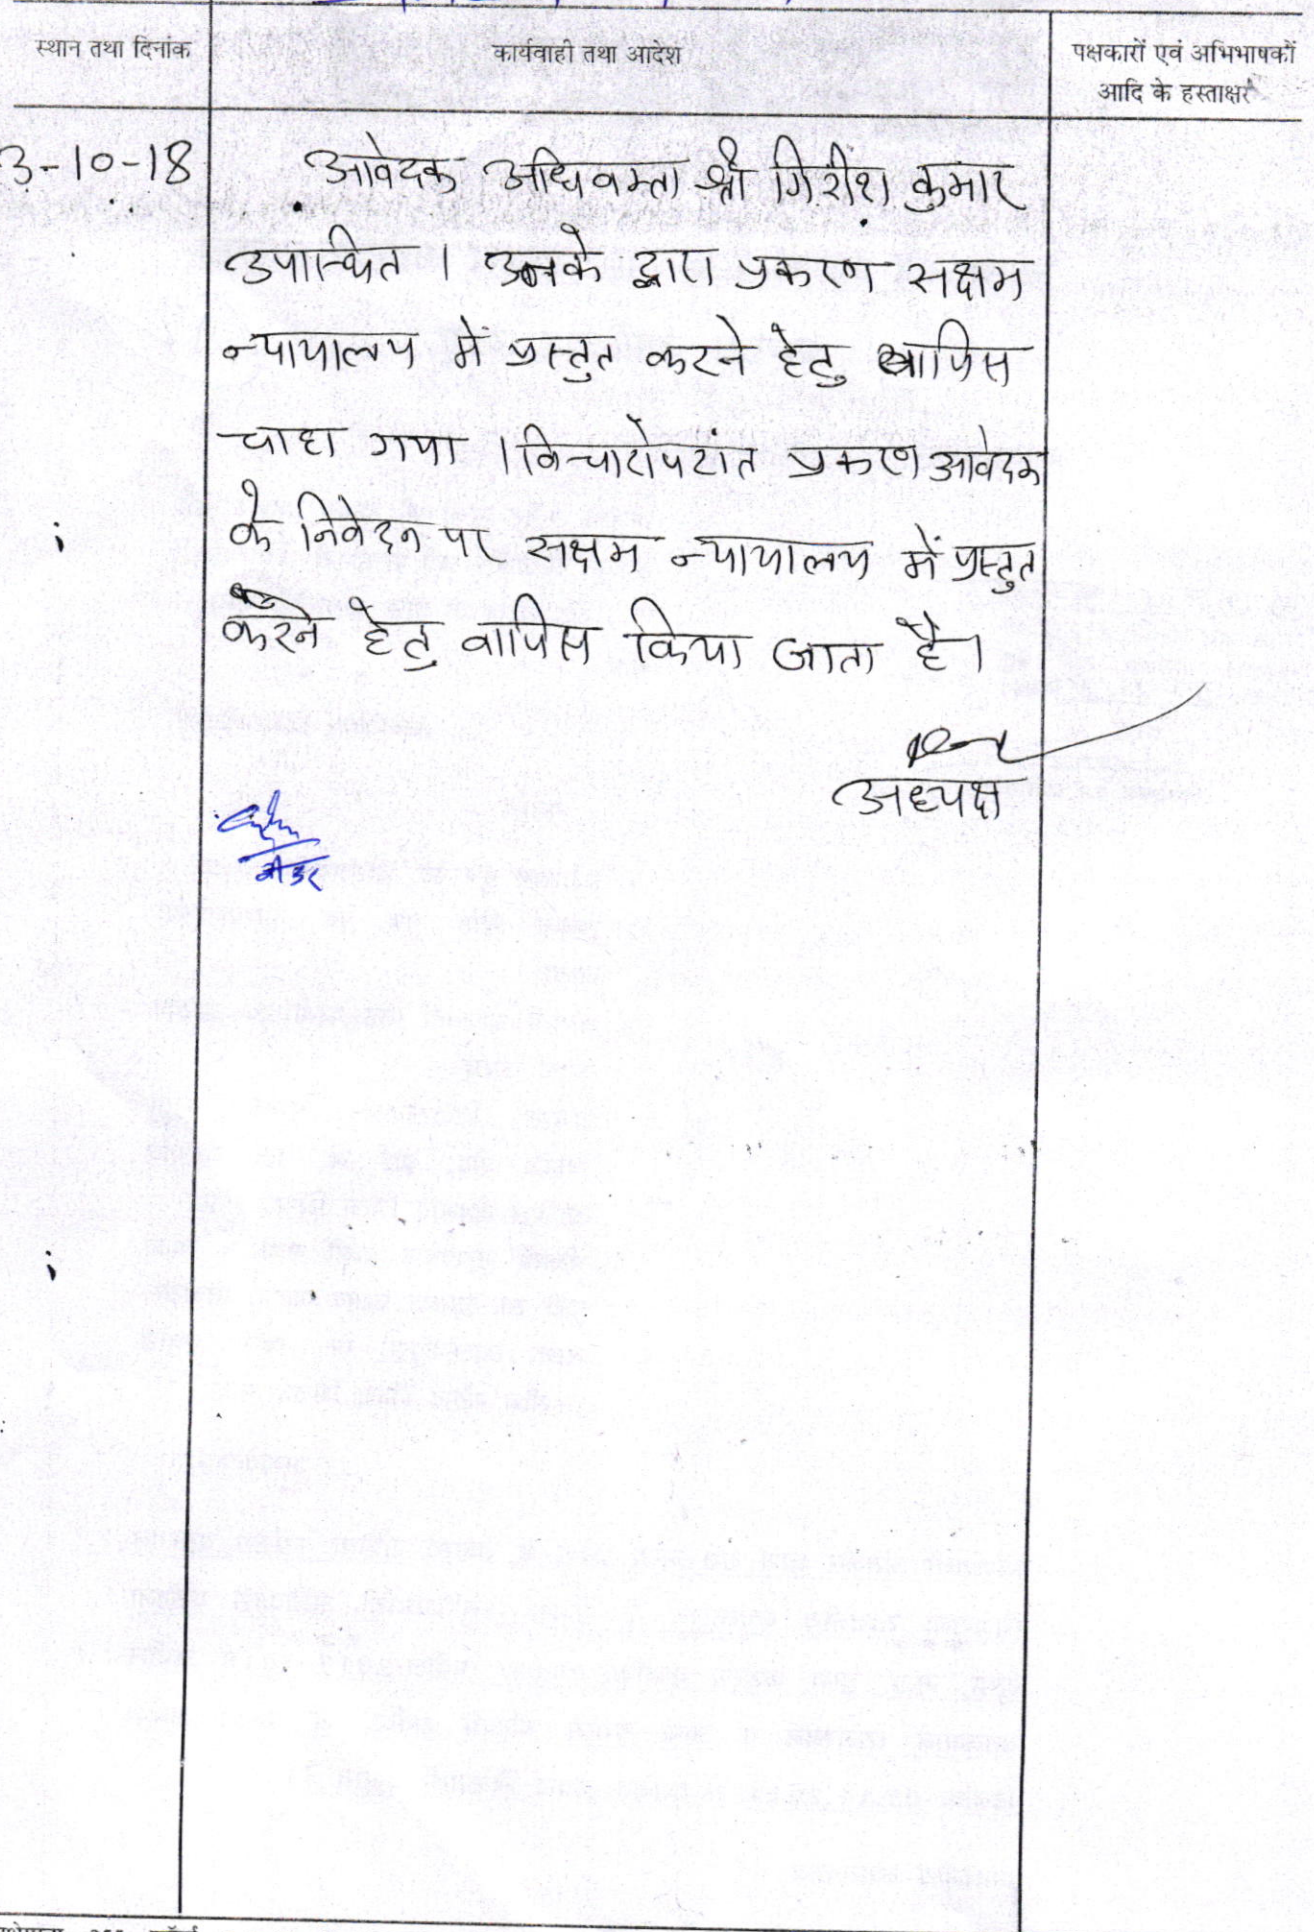 स्थान तथा दिनांक
कार्यवाही तथा आदेश
पक्षकारों एवं अभिभाषकों
आदि के हस्ताक्षर
3-10-18
आवेदक अधिवक्ता श्री गिरीश कुमार
उपस्थित । उनके द्वारा प्रकरण सक्षम
न्यायालय में प्रस्तुत करने हेतु वापिस
चाहा गया । विचारोपरांत प्रकरण आवेदक
के निवेदन पर सक्षम न्यायालय में प्रस्तुत
करने हेतु वापिस किया जाता है।
अध्यक्ष
रीडर